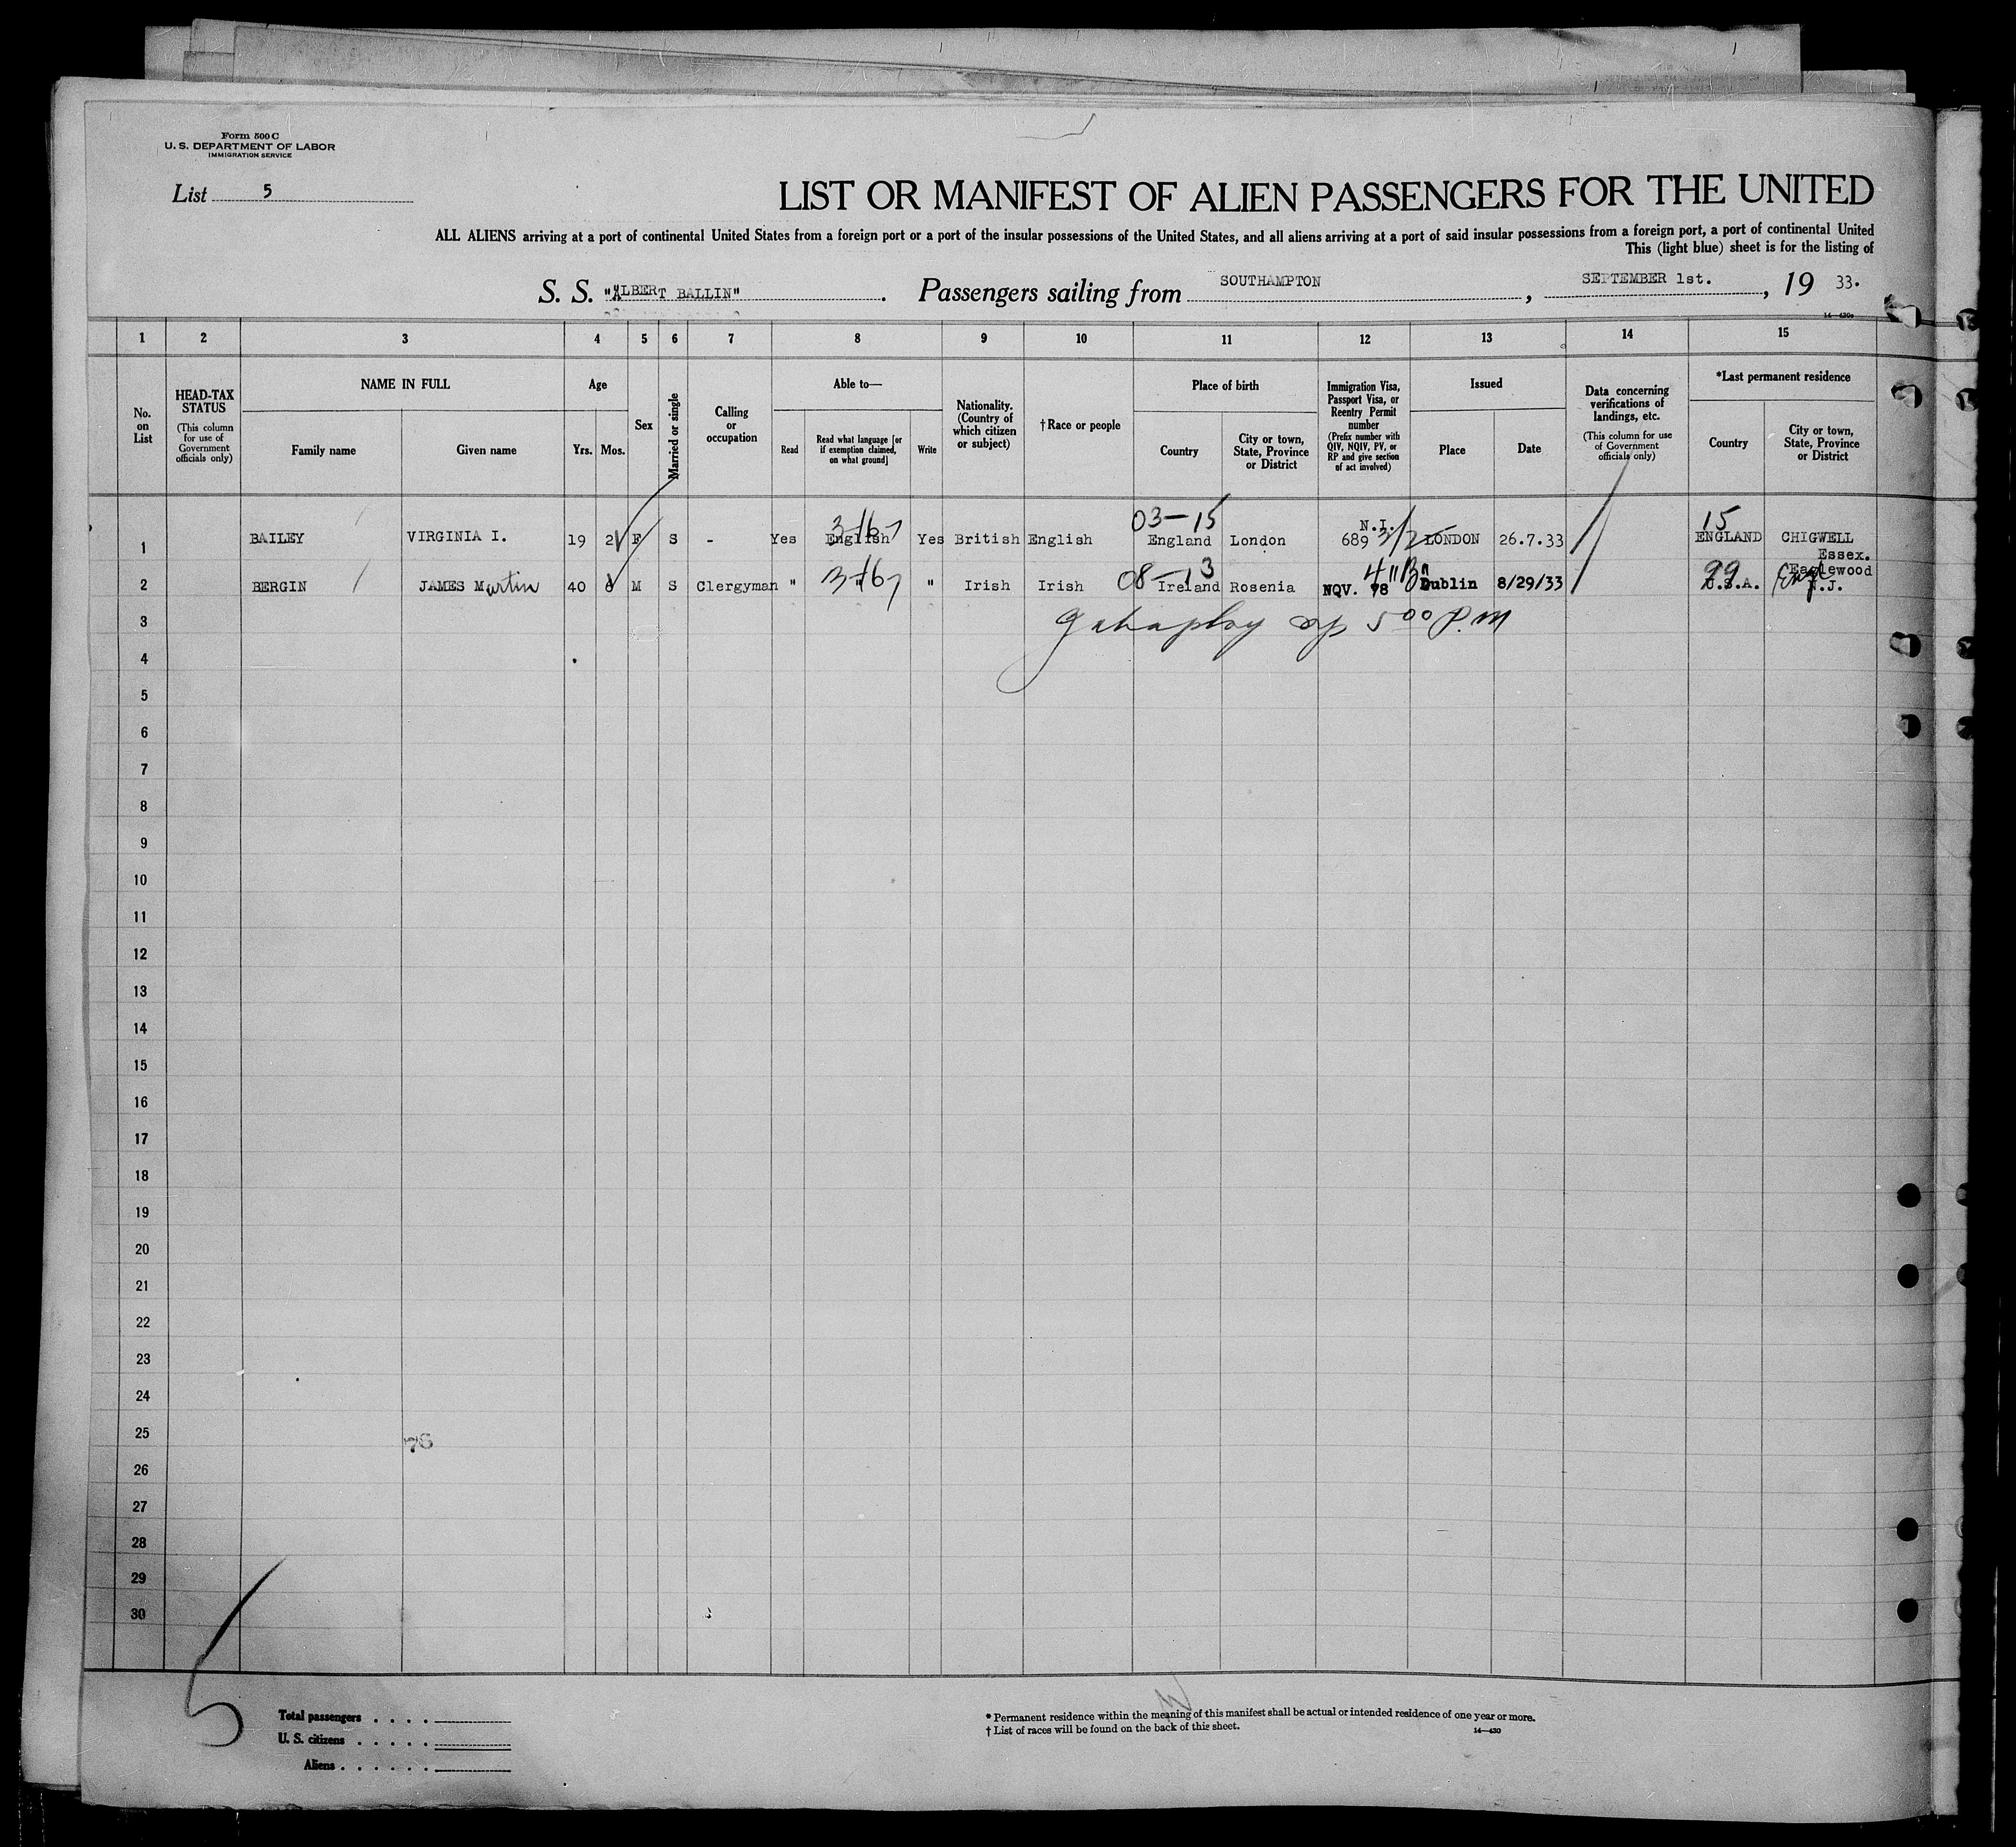 Form 500 C
U. S. DEPARTMENT OF LABOR
IMMIGRATION SERVICE
List 5
LIST OR MANIFEST OF ALIEN PASSENGERS FOR THE UNITED
ALL ALIENS arriving at a port of continental United States from a foreign port or a port of the insular possessions of the United States, and all aliens arriving at a port of said insular possessions from a foreign port, a port of continental United
This (light blue) sheet is for the listing of
S. S. "ALBERT BALLIN". Passengers sailing from SOUTHAMPTON, SEPTEMBER 1st., 19 33.
14—430a
1 2 3 4 5 6 7 8 9 10 11 12 13 14 15
No. on List
HEAD-TAX STATUS
(This column for use of Government officials only)
NAME IN FULL
Family name Given name
Age
Yrs. Mos.
Sex
Married or single
Calling or occupation
Able to—
Read
Read what language [or if exemption claimed, on what ground]
Write
Nationality. (Country of which citizen or subject)
†Race or people
Place of birth
Country
City or town, State, Province or District
Immigration Visa, Passport Visa, or Reentry Permit number
(Prefix number with QIV, NQIV, PV, or RP and give section of act involved)
Issued
Place Date
Data concerning verifications of landings, etc.
(This column for use of Government officials only)
*Last permanent residence
Country
City or town, State, Province or District
03—15 N.I. 3/2 15
1 BAILEY VIRGINIA I. 19 2 F S - Yes English Yes British English England London 689 LONDON 26.7.33 ENGLAND CHIGWELL
Essex.
08—13 99 Eaglewood
2 BERGIN JAMES Martin 40 8 M S Clergyman " " " Irish Irish Ireland Rosenia NQV. 78 Dublin 8/29/33 U.S.A. N.J.
3
5 00 P.M
4
5
6
7
8
9
10
11
12
13
14
15
16
17
18
19
20
21
22
23
24
25
76
26
27
28
29
30
5
Total passengers . . . .
U. S. citizens . . . . .
Aliens . . . . . .
* Permanent residence within the meaning of this manifest shall be actual or intended residence of one year or more.
† List of races will be found on the back of this sheet.
14—430